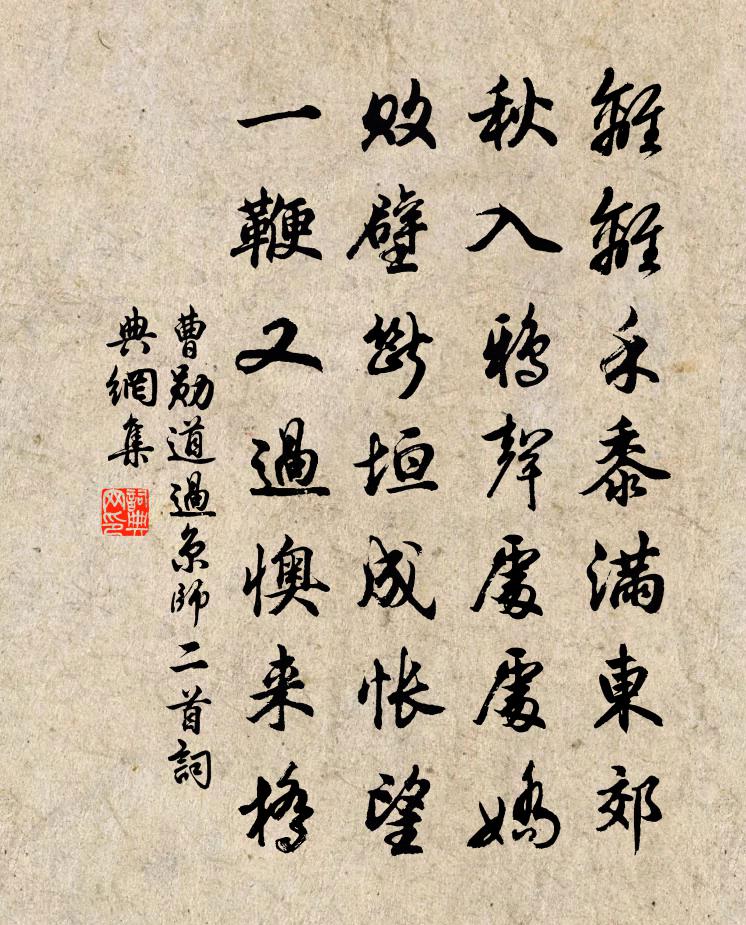 離離禾黍滿東郊
秋入鴉聲處處嬌
敗壁斷垣成悵望
一鞭又過懊来橋
曹勛道過京師二首詞
典網集
詞典
网印